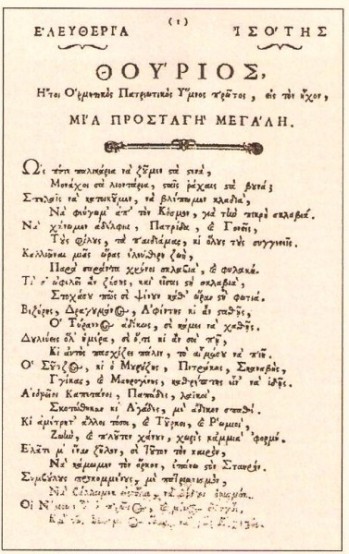 (1)
ΕΛΕΥΘΕΡΙΑ ΙΣΟΤΗΣ
ΘΟΥΡΙΟΣ,
Ἤτοι Ὁρμητικὸς Πατριωτικὸς Ὕμνος πρῶτος, εἰς τὸν ἦχον,
ΜΙΑ ΠΡΟΣΤΑΓΗ ΜΕΓΑΛΗ.
Ὡς πότε παλικάρια νὰ ζοῦμεν στὰ στενά,
Μονάχοι σὰ λιοντάρια, σταῖς ράχαις στὰ βουνά;
Σπηλαῖς νὰ κατοικοῦμεν, νὰ βλέπωμεν κλαδιά,
Νὰ φεύγωμ' ἀπ' τὸν Κόσμον, γιὰ τὴν πικρὴ σκλαβιά.
Νὰ χάνωμεν ἀδέλφια, Πατρίδα, καὶ Γονεῖς,
Τοὺς φίλους, τὰ παιδιάμας, κι ὅλους τοὺς συγγενεῖς.
Καλλιόναι μιᾶς ὥρας ἐλεύθερη ζωή,
Παρὰ σαράντα χρόνοι σκλαβιά, καὶ φυλακή.
Τί σ' ὠφελεῖ ἂν ζήσῃς, καὶ εἶσαι στὴ σκλαβιά,
Στοχάσου πῶς σὲ ψένουν καθ' ὥραν στὴ φωτιά.
Βεζύρης, Δραγουμάνος, Ἀφέντης κι ἂν σταθῇς,
Ὁ Τύραννος ἀδίκως, σὲ κάμει νὰ χαθῇς.
Δουλεύεις ὅλ' ἡμέρα, σὲ ὅ,τι κι ἂν σοὶ πῇ,
Κι αὐτὸς πασχίζει πάλιν, τὸ αἷμασου νὰ πιῇ.
Ὁ Σοῦτζος, κι ὁ Μουρούζης, Πετράκης, Σκαναβής,
Γγίκας, καὶ Μαυρογένης, καθρέπτης εἶν' νὰ ἰδῇς.
Ἀνδρεῖοι Καπετάνοι, Παπάδες, λαϊκοί,
Σκοτώθηκαν κι Ἀγάδες, μὲ ἄδικον σπαθί.
Κι ἀμέτρητ' ἄλλοι τόσοι, καὶ Τοῦρκοι, καὶ Ρωμιοί,
Ζωήν, καὶ πλοῦτον χάνουν, χωρὶς καμμιὰ 'φορμή.
Ἐλᾶτε μ' ἕνα ζῆλον, σὲ τοῦτον τὸν καιρόν,
Νὰ κάμωμεν τὸν ὅρκον, ἐπάνω στὸν Σταυρόν.
Συμβούλους προκομμένους, μὲ πατριωτισμόν,